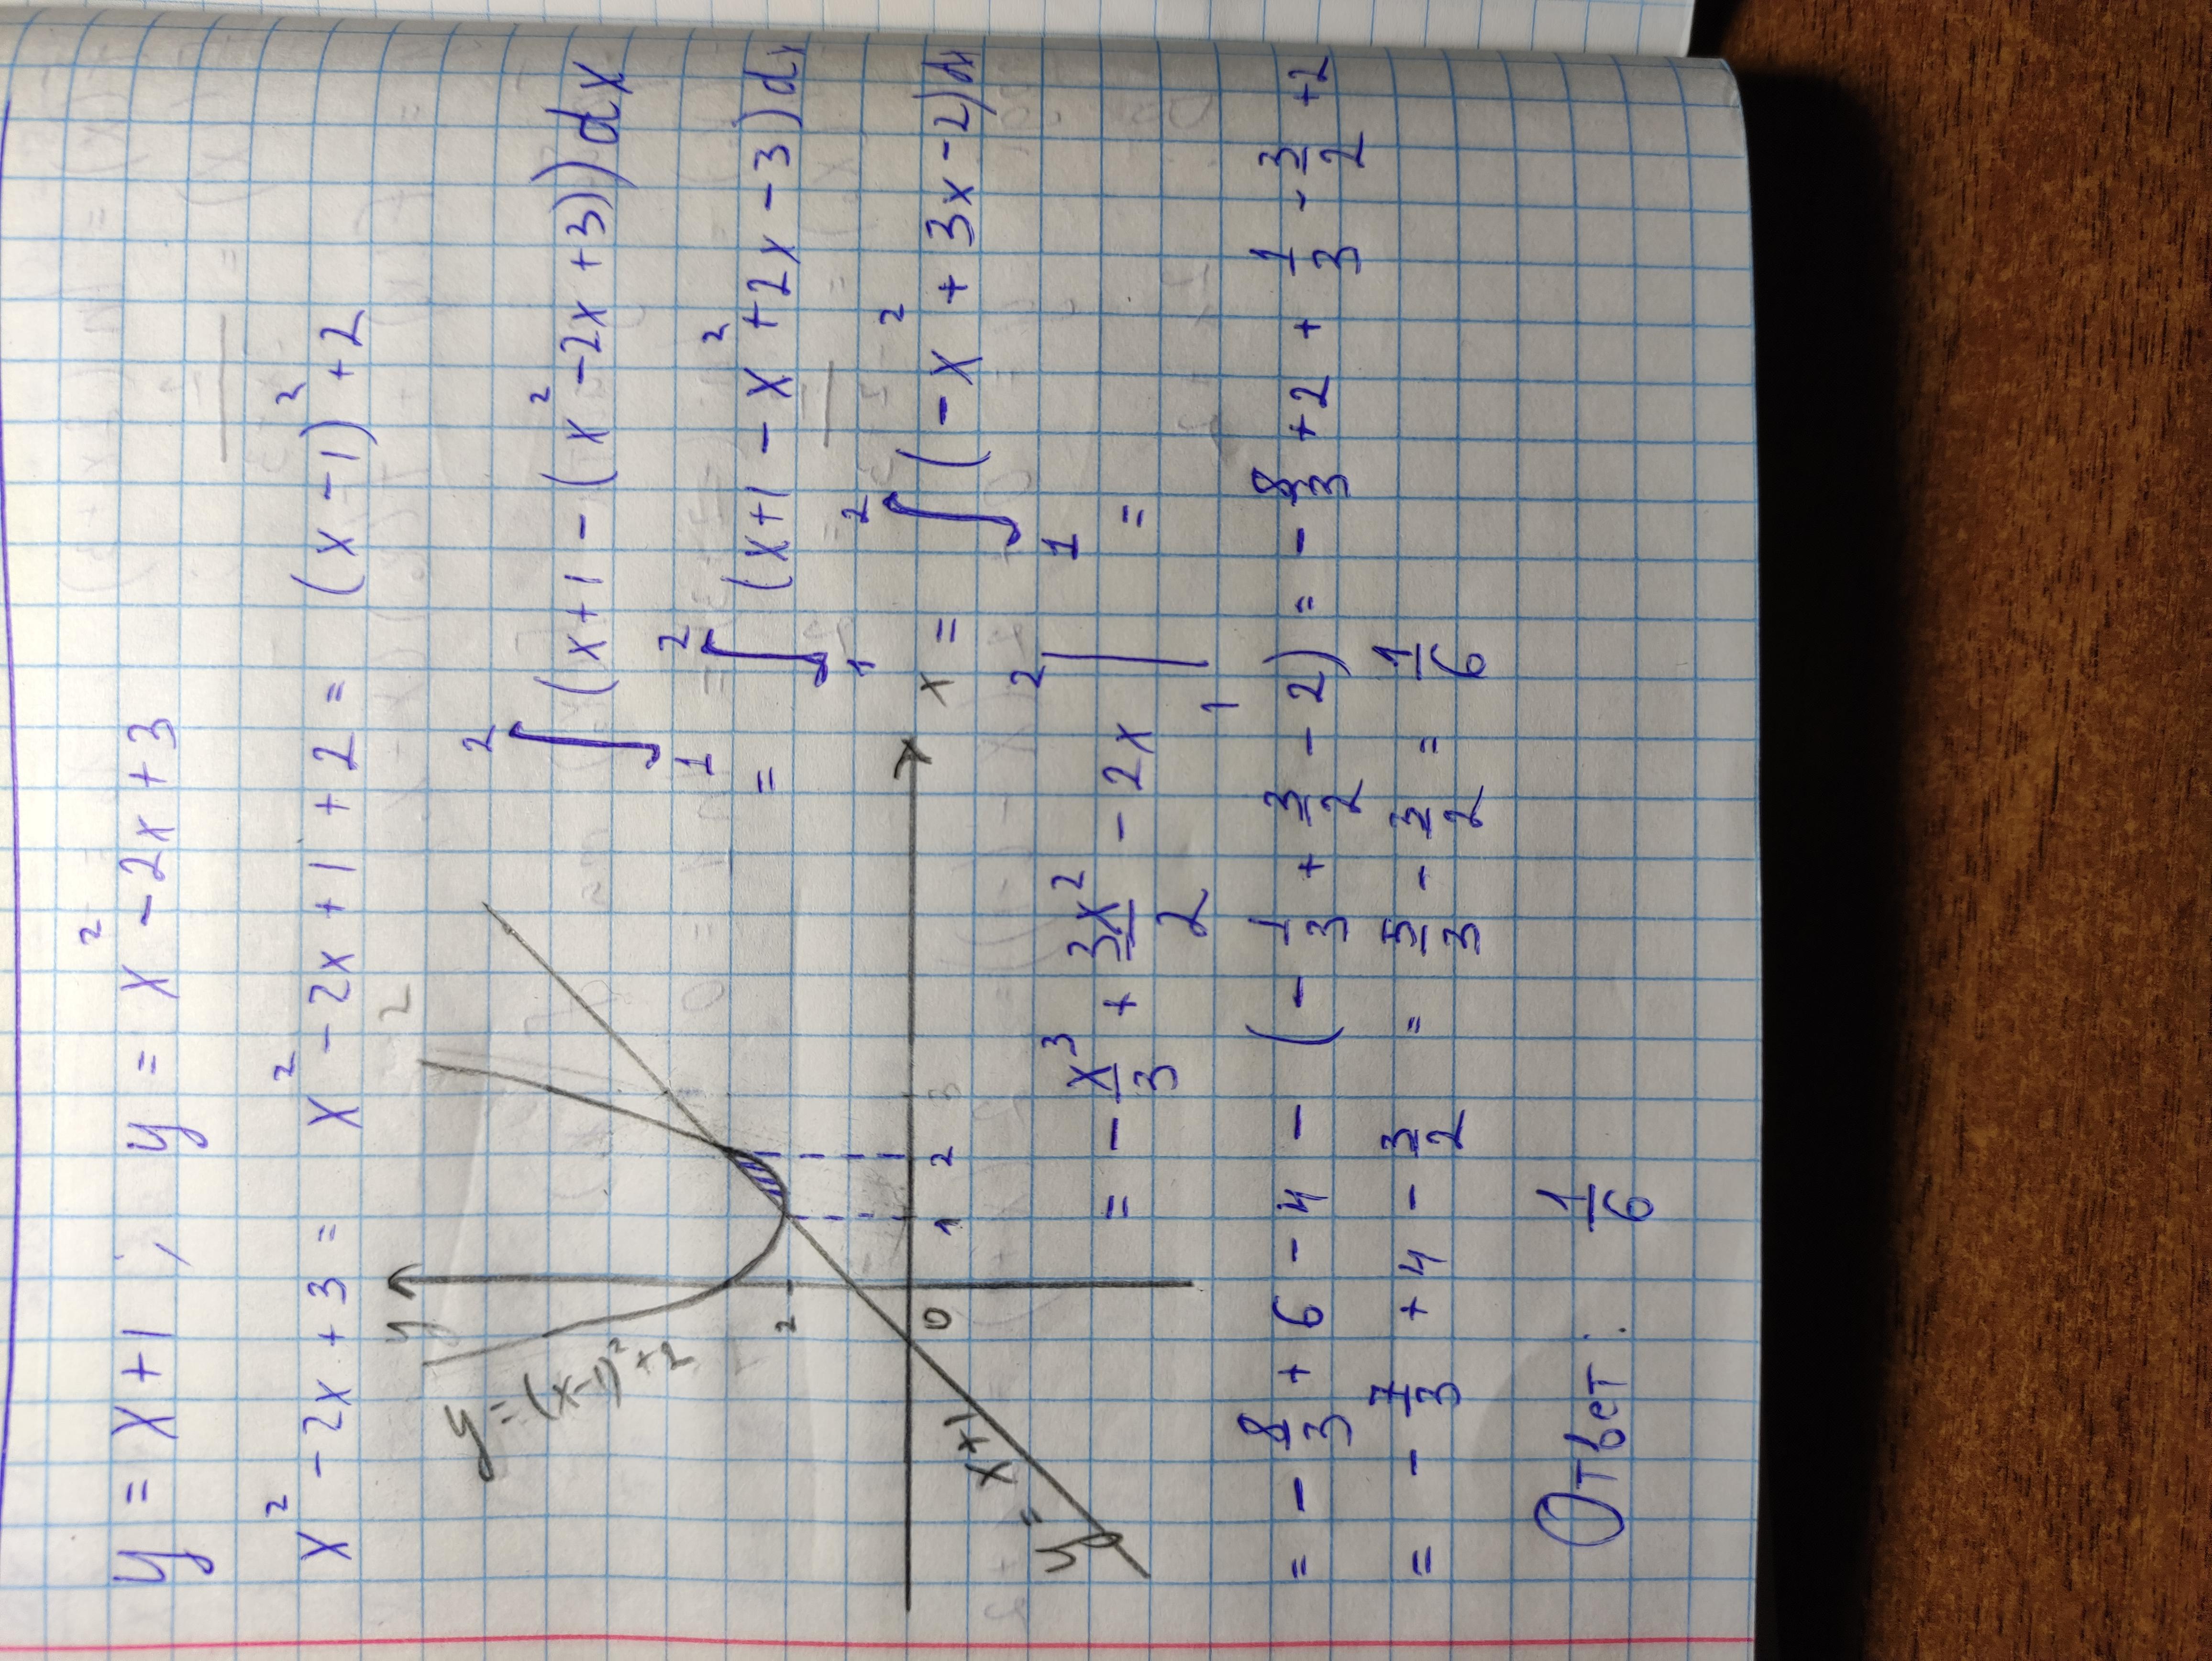 y = x+1, y = x² - 2x + 3
x² - 2x + 3 = x² - 2x + 1 + 2 = (x-1)² + 2
y
2
y = (x-1)² + 2
2
0
1
2
3
x
y = x+1
∫₁² (x+1 - (x² - 2x + 3)) dx
= ∫₁² (x+1 - x² + 2x - 3) dx
= ∫₁² (-x² + 3x - 2) dx
= - x³/3 + 3x²/2 - 2x |₁² =
= - 8/3 + 6 - 4 - (- 1/3 + 3/2 - 2) = - 8/3 + 2 + 1/3 - 3/2 + 2
= - 7/3 + 4 - 3/2 = 5/3 - 3/2 = 1/6
Ответ: 1/6